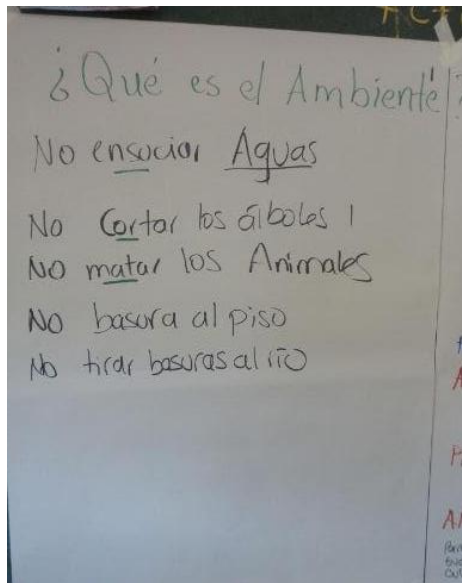 ¿Qué es el Ambiente
No ensuciar Aguas
No Cortar los árboles
No matar los Animales
No basura al piso
No tirar basuras al río